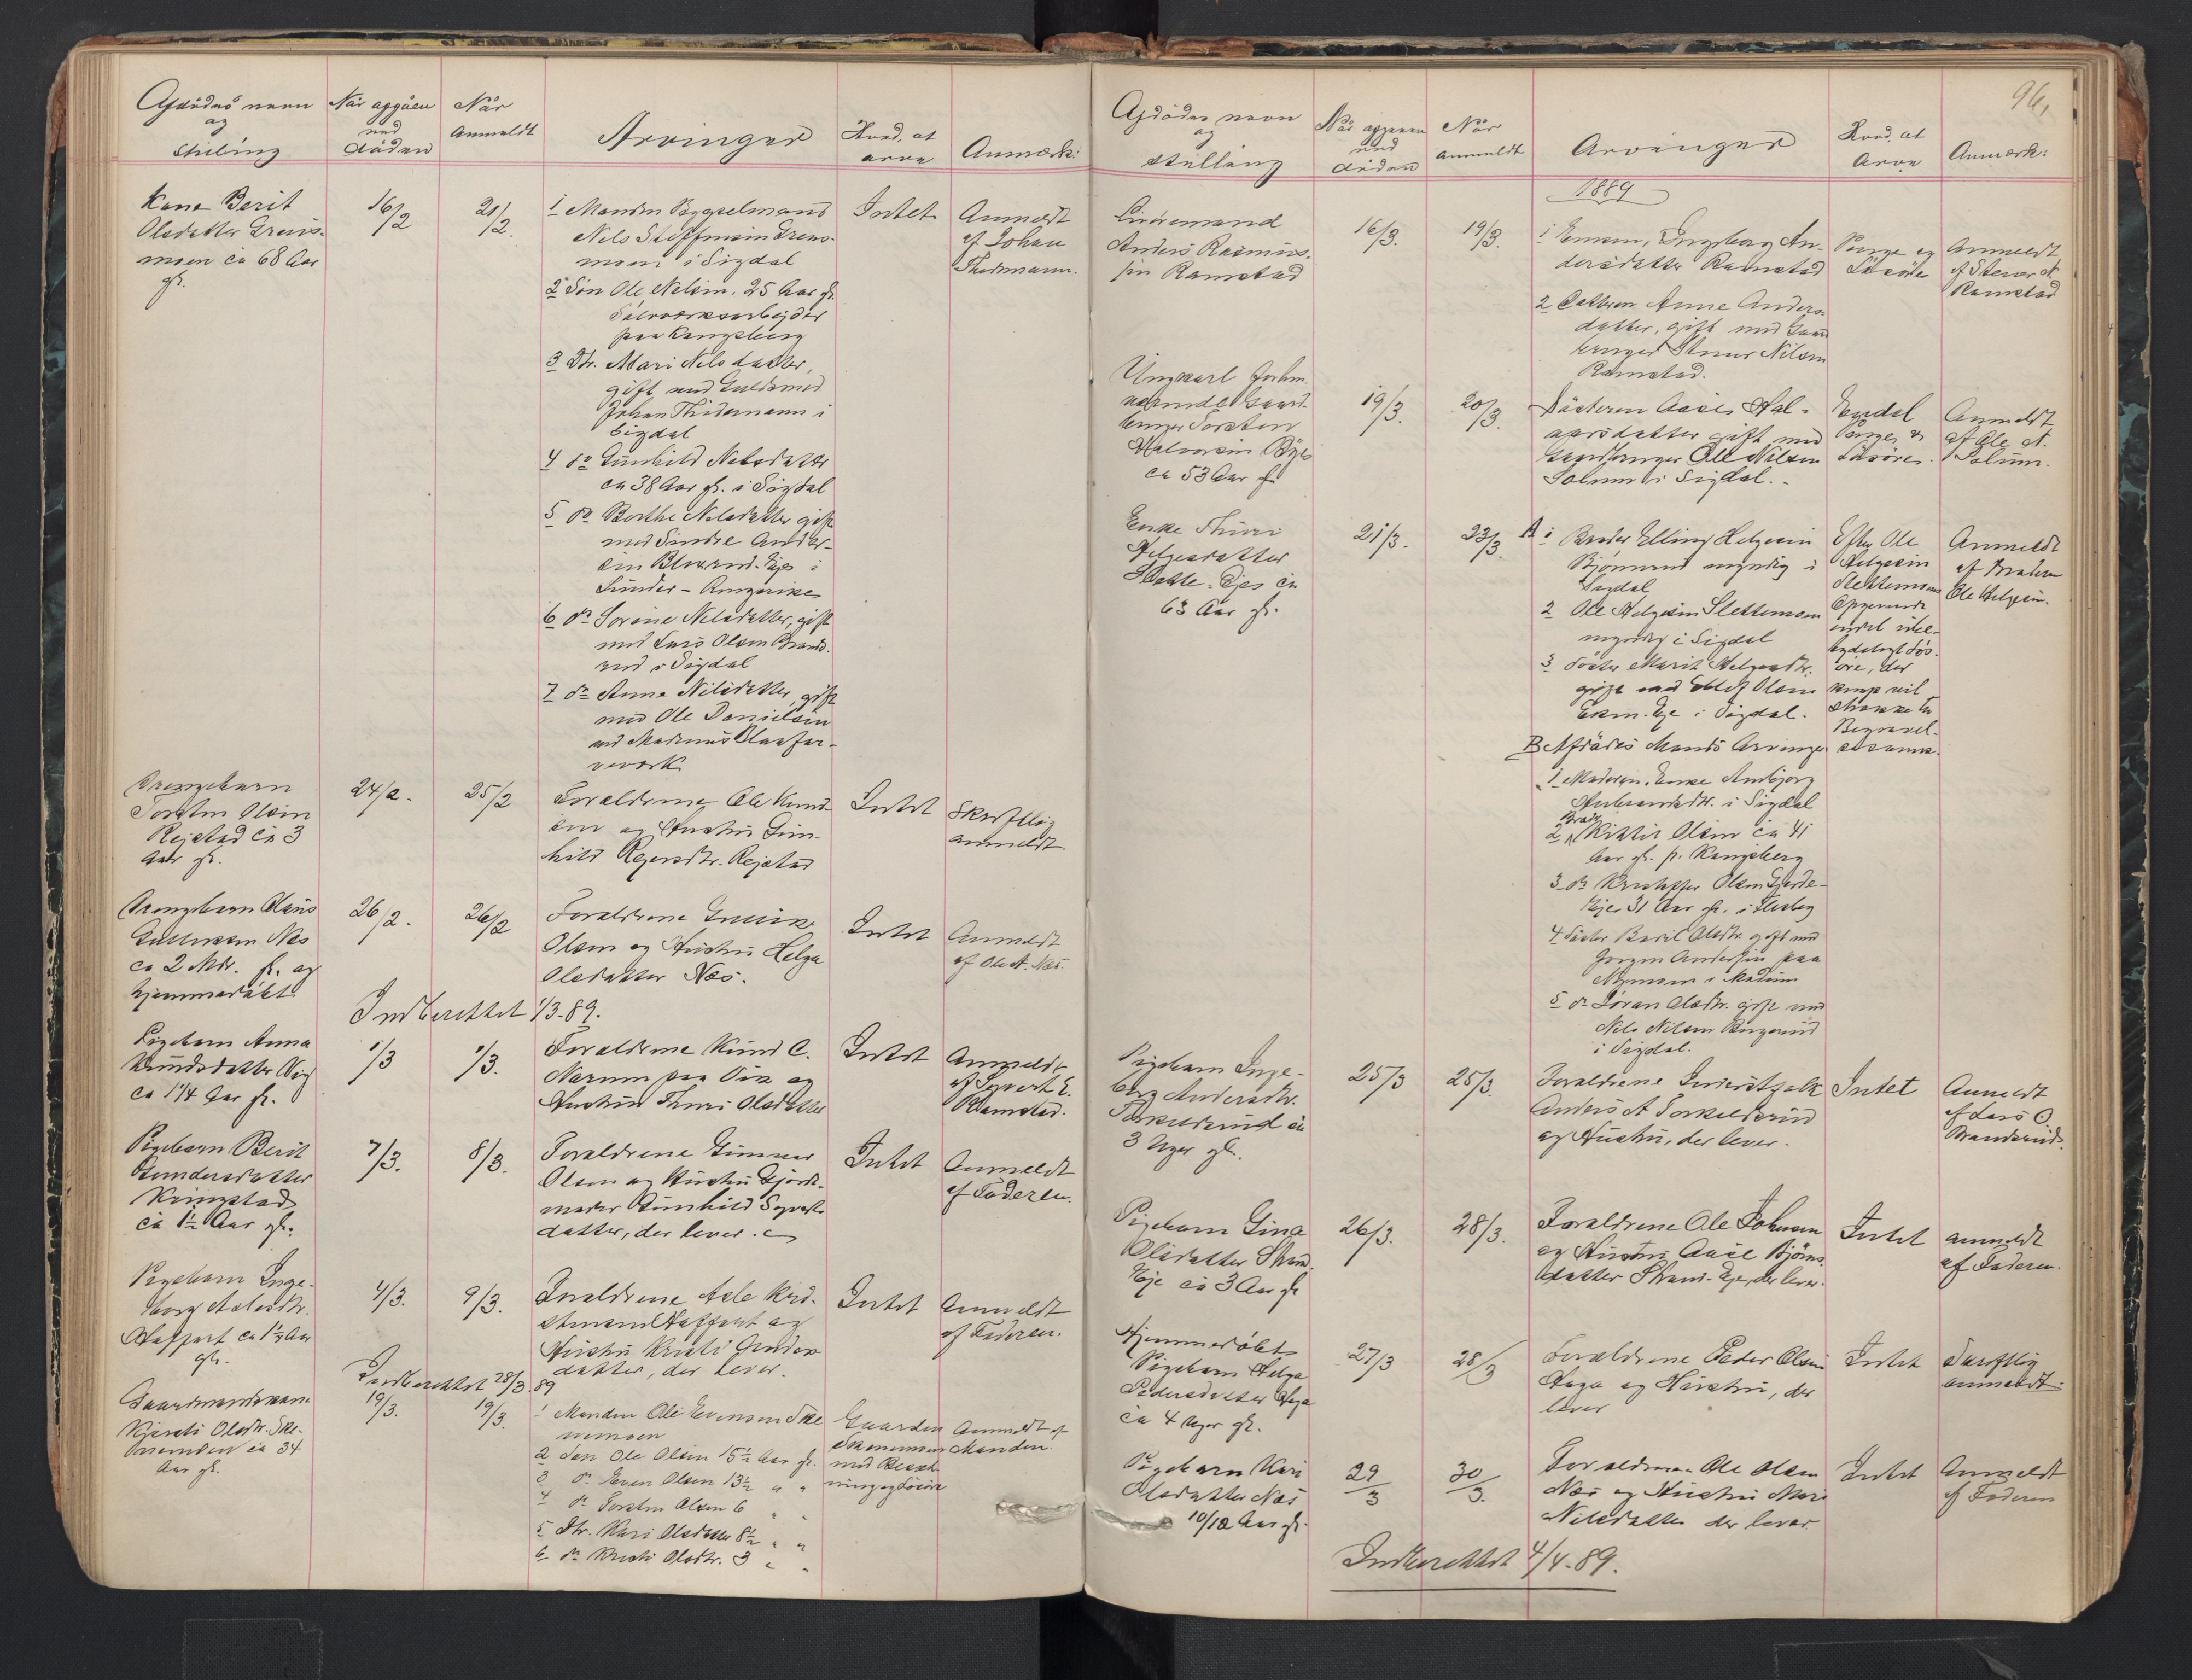 Afdødes navn
og
Stilling
Når afgåen
ved
døden
Når
Anmeldt
Arvinger
Hvad at
arve
Anmærk:
Kone Berit
Olsdatter Grens-
moen ca 68 Aar
gl.
16/2
21/2.
1 Manden Bygselmand
Nils Steffensen Grens-
moen i Sigdal
2 Søn Ole Nelsen. 25 Aar gl.
Sølvværksarbejder
paa Kongsberg
3 Dtr. Mari Nilsdatter,
gift med Guldsmed
Johan Thidemann i
Sigdal
4 do Gunhild Nelsdatter
ca 38 Aar gl. i Sigdal
5 do Berthe Nelsdatter gift
med Sindre Ander-
sen Eje i
Ringerike
6 do Sorine Nelsdatter, gift
med Lars Olsen Brand-
rud i Sigdal
7 do Anne Nilsdatter, gift
med Ole Danielsen
ved Modums Blaafar-
veværk
Intet
Anmeldt
af Johan
Thidemann.
Drengebarn
Torsten Olsen
Rejstad ca 3
Aar gl.
24/2.
25/2
Forældrene Ole Knud-
sen og Hustru Gun-
hild Rejstad
Intet
Skriftlig
anmeldt
Drengebarn Olaus
Gulliksen Næs
ca 2 Mdr. gl. og
hjemmedøbt
26/2.
26/2
Forældrene Gullik
Olsen og Hustru Helga
Olsdatter Næs.
Intet
Anmeldt
af Ole A. Næs.
Indberettet 1/3-89.
Pigebarn Anna
Knudsdatter Vig
ca 1 1/4 Aar gl.
1/3
1/3.
Forældrene Knud C.
Narum paa Vig og
Hustru Thuri Olsdatter
Intet
Anmeldt
af Syvert E.
Ramstad.
Pigebarn Berit
Gunnersdatter
Kringstad
ca 1½ Aar gl.
7/3.
8/3.
Forældrene Gunner
Olsen og Hustru Gjorde-
moder Gunhild Syverts-
datter, der lever.
Intet
Anmeldt
af Faderen.
Pigebarn Inge-
borg Aslesdtr.
Haffart ca 1½ Aar
gl.
4/3.
9/3.
Forældrene Asle Kri-
stensen Haffart og
Hustru Kristi Anders-
datter, der lever.
Intet
Anmeldt
af Faderen.
Indberettet 28/3.89
Gaardmandskone
Kjersti Olsdtr. Ske-
ca 34
Aar gl.
19/3.
19/3.
1 Manden Ole Evensen
2 Søn Ole Olsen 15½ Aar gl.
3 do Even Olsen 13½ " "
4 do Torsten Olsen 6 " "
5 Dtr. Kari Olsdatter 8½ " "
6 do Kristi Olsdtr. 3 " "
Gaarden
med Besæt-
ning og Løsøre
Anmeldt af
Manden.
96,
Afdødes navn
og
stilling
Når afgaaen
ved
døden
Når
anmeldt
Arvinger
Hvad at
Arve
Anmærk:
1889
Anders Rasmus-
sen Ramstad
16/3.
19/3.
1 Enken, Ingeborg An-
dersdatter Ramstad
2 Datteren Anne Anders-
datter, gift med Gaard-
bruger Stener Nilsen
Ramstad.
Penge og
Løsøre
Anmeldt
af Stener N.
Ramstad
Ungkarl forhen-
værende Gaard-
bruger Torsten
Halvorsen Bøge
ca 53 Aar gl
19/3.
20/3.
Søsteren Aase Hal-
vorsdatter gift med
Gaardbruger Ole Nilsen
Solum i Sigdal.
Endel
Penge og
Løsøre.
Anmeldt
af Ole N.
Solum.
Enke Thuri
Helgesdatter
Slette-Ejes ca
63 Aar gl.
21/3.
23/3.
A 1 Broder Elling Helgesen
Bjørnerud myndig i
Sigdal
2 Ole Helgesen Slettemoen
myndig i Sigdal
3 Søster Marit Helgesdtr.
gift med Ellef Olsen
Ekern-Eje i Sigdal.
B Afdødes Mands Arvinger
1 Moderen, Enke Ambjørg
i Sigdal
2 Broder Kittil Olsen ca 41
Aar gl. p. Kongsberg
3 do Kristoffer Olsen Gjerde-
Ejes 31 Aar gl. i Flesberg
4 Søster Berit Olsdtr. gift med
Jørgen Andersen paa
i Modum
5 do Jøran Olsdtr. gift med
Nils Nilsen
i Sigdal.
Efter Ole
Helgesen
Slettemoens
Opgivende
endel ube-
tydeligt Løs-
øre, der
knap vil
strække til
Begravel-
sesomk.
Anmeldt
af Broderen
Ole Helgesen.
Pigebarn Inge-
borg Andersdtr.
Torkelsrud ca
3 Uger gl.
25/3
25/3.
Forældrene Inderstfolk
Anders A Torkelsrud
og Hustru, der lever.
Intet
Anmeldt
af Lars O.
Brandsrud.
Pigebarn Gina
Olsdatter Strand-
Eje ca 3 Aar gl
26/3.
28/3.
Forældrene Ole Johnsen
og Hustru Aase Bjørns-
datter Strand-Eje, der lever.
Intet
anmeldt
af Faderen.
Hjemmedøbt
Pigebarn Helga
Pedersdatter Haga
ca 4 Uger gl.
27/3
28/3
Forældrene Peder Olsen
Haga og Hustru, der
lever
Intet
Skriftlig
anmeldt.
Pigebarn Kari
Olsdatter Næs
10/12 Aar gl.
29/3
30/3.
Forældrene Ole Olsen
Næs og Hustru Mari
Nilsdatter der lever.
Intet
Anmeldt
af Faderen
Indberettet 4/4-89.